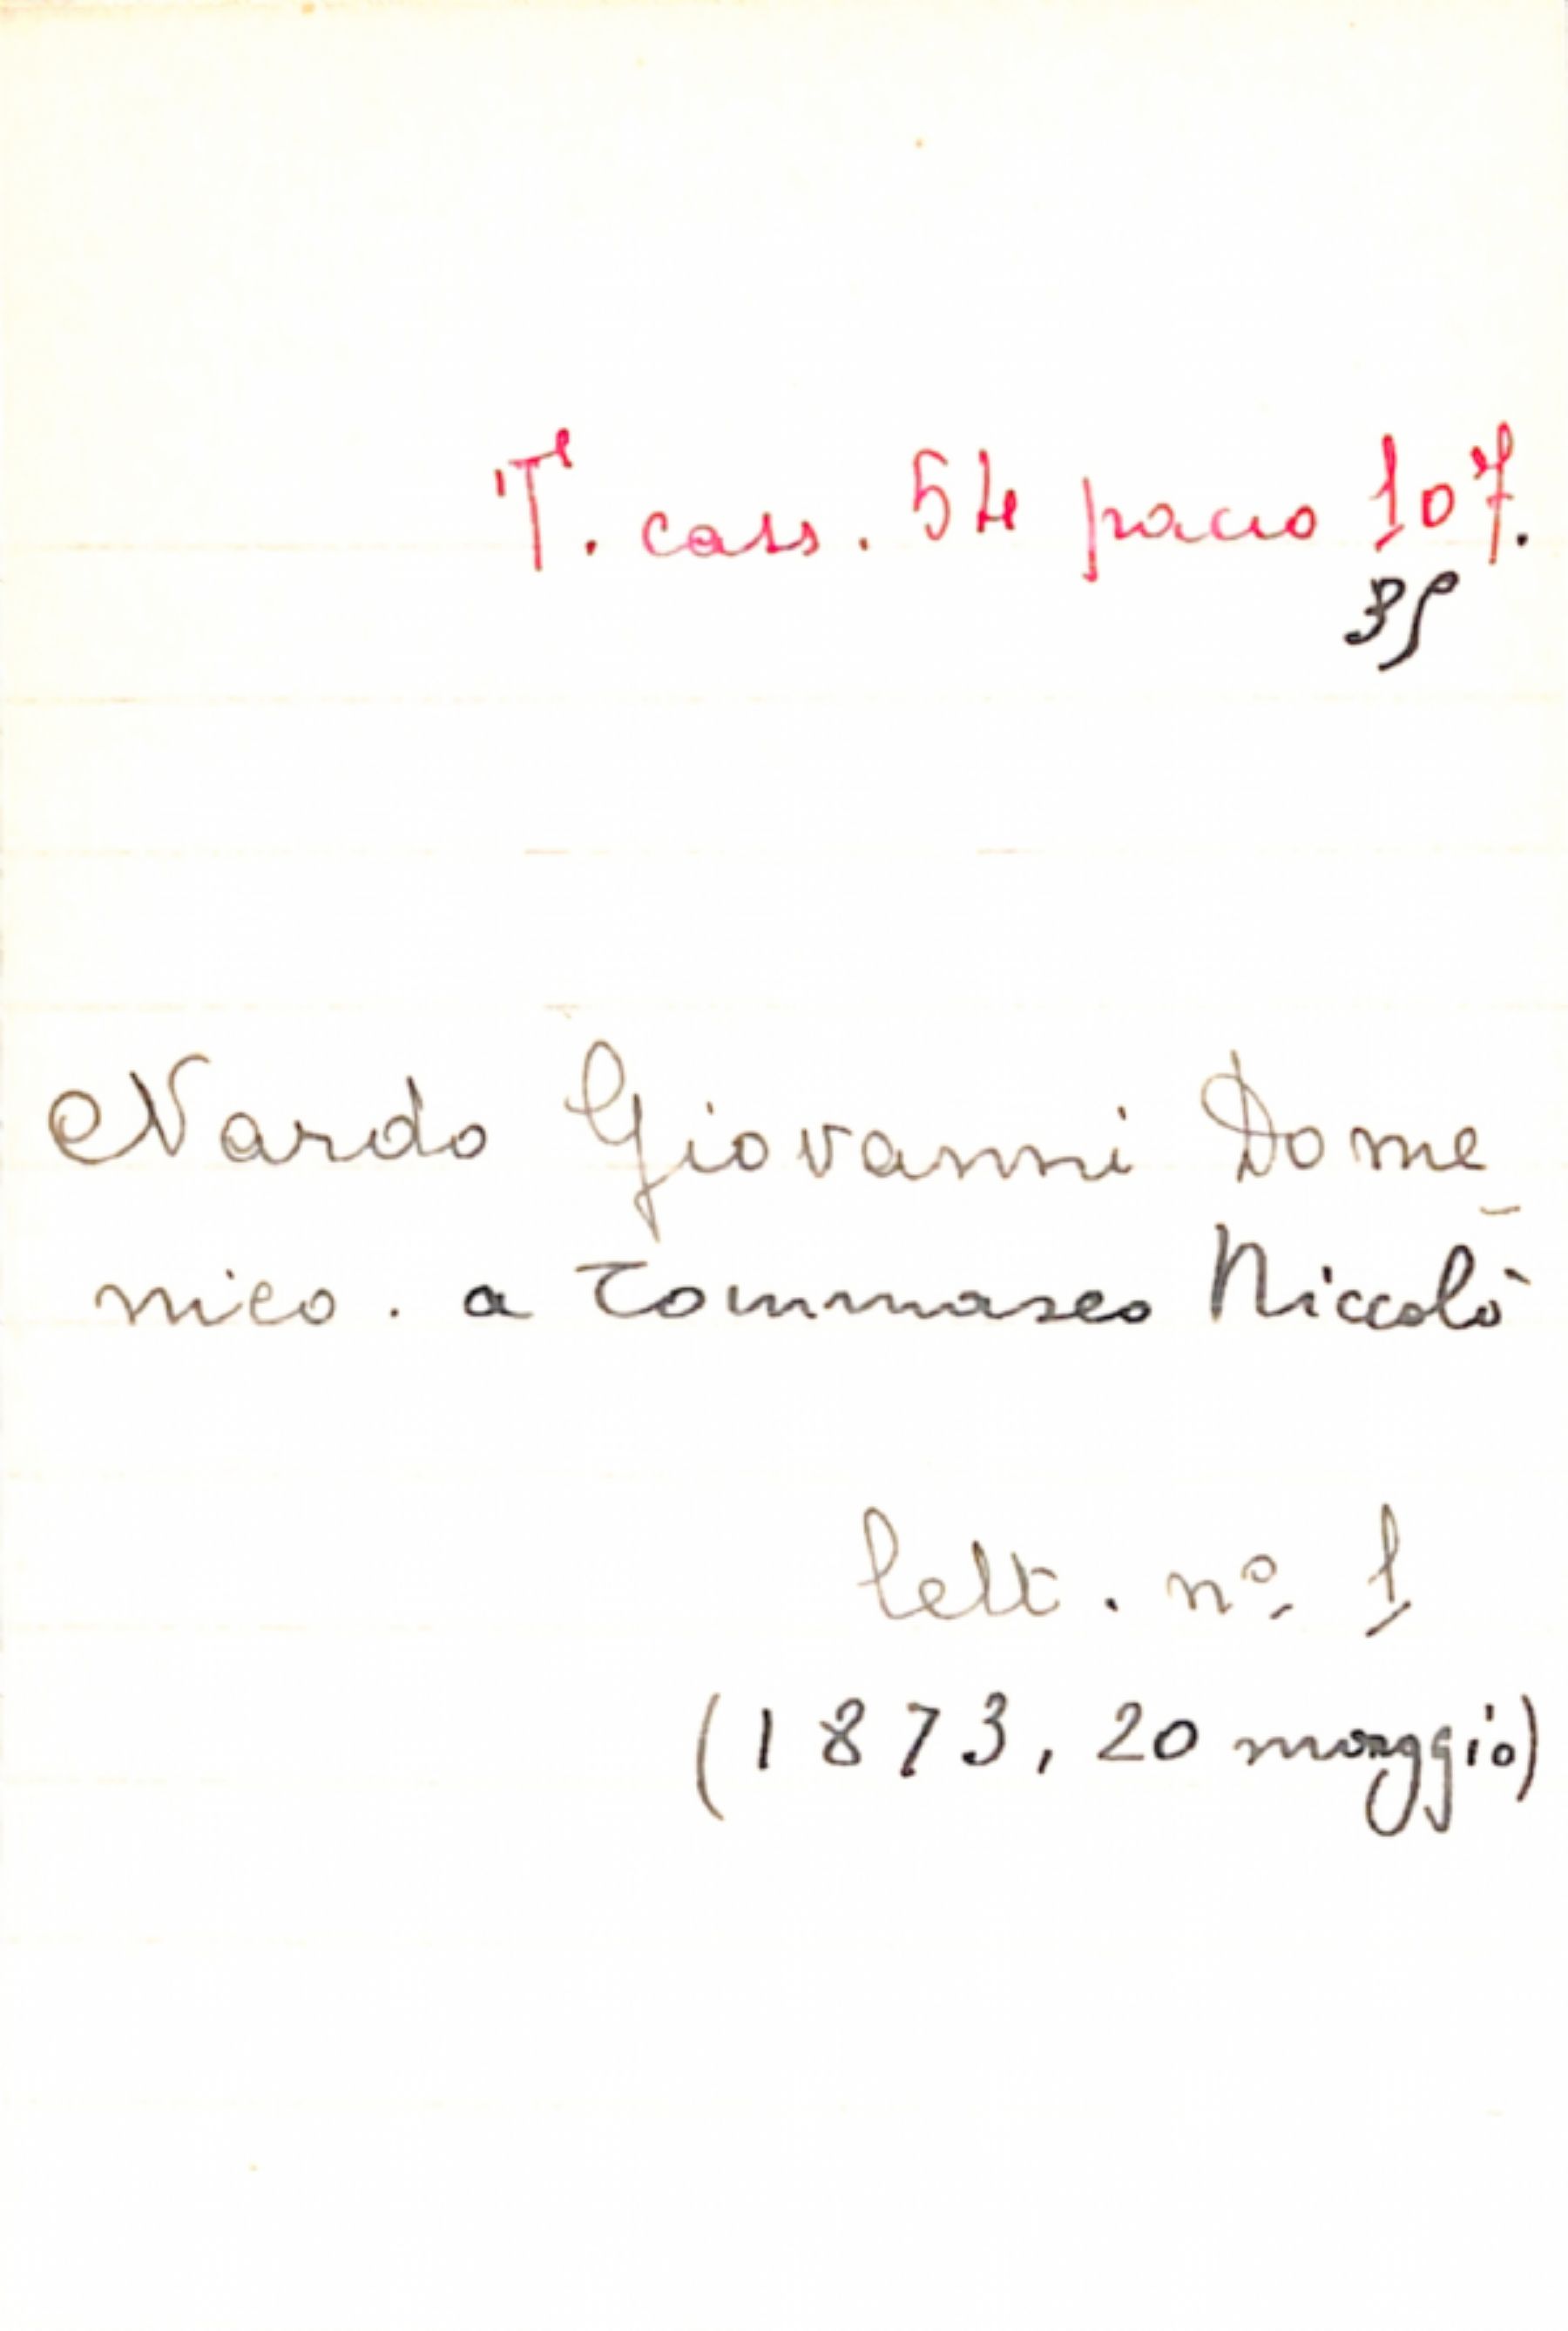 T. cass. 54 pacco 107.
35
Nardo Giovanni Dome
nico. a Tommaseo Niccolò
lett. nº 1
(1873, 20 maggio)